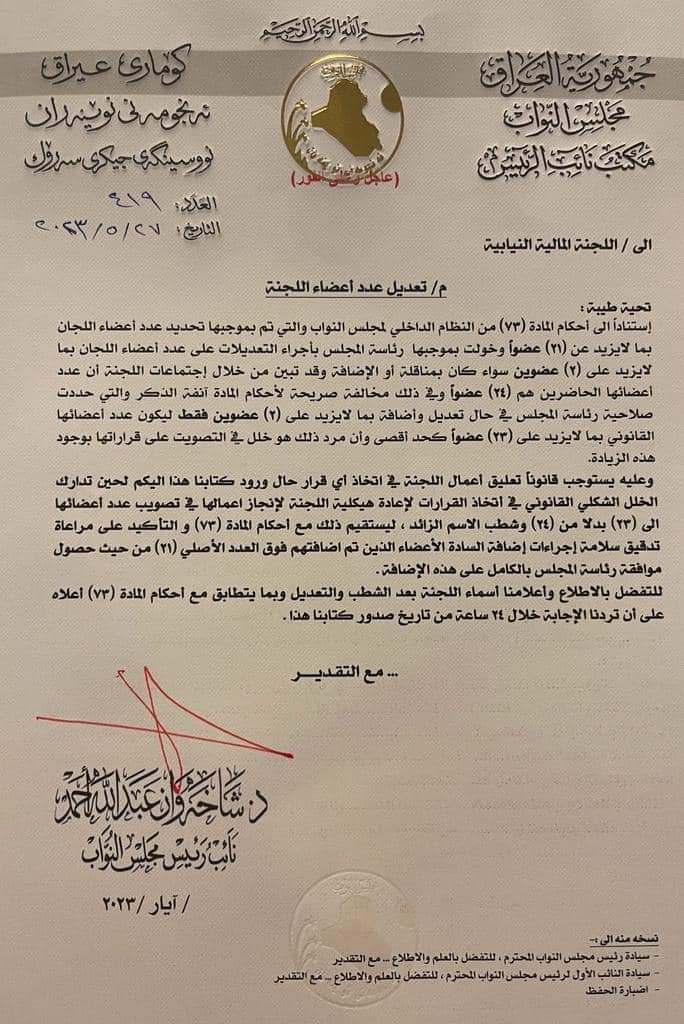 بسم الله الرحمن الرحيم
جمهورية العراق
مجلس النواب
مكتب نائب الرئيس
كۆماری عێراق
ئه نجومه نی نوێنه ران
نووسینگه ی جیگری سه رۆك
(عاجل وعلى الفور)
العدد: ٤١٩
التاريخ: ٢٠٢٣/٥/٢٧
الى / اللجنة المالية النيابية
م/ تعديل عدد أعضاء اللجنة
تحية طيبة :
إستناداً الى أحكام المادة (٧٣) من النظام الداخلي لمجلس النواب والتي تم بموجبها تحديد عدد أعضاء اللجان
بما لايزيد عن (٢١) عضواً وخولت بموجبها رئاسة المجلس بأجراء التعديلات على عدد أعضاء اللجان بما
لايزيد على (٢) عضوين سواء كان بمناقلة أو الإضافة وقد تبين من خلال إجتماعات اللجنة أن عدد
أعضائها الحاضرين هم (٢٤) عضواً وفي ذلك مخالفة صريحة لأحكام المادة آنفة الذكر والتي حددت
صلاحية رئاسة المجلس في حال تعديل وأضافة بما لايزيد على (٢) عضوين فقط ليكون عدد أعضائها
القانوني بما لايزيد على (٢٣) عضواً كحد أقصى وأن مرد ذلك هو خلل في التصويت على قراراتها بوجود
هذه الزيادة.
وعليه يستوجب قانوناً تعليق أعمال اللجنة في اتخاذ أي قرار حال ورود كتابنا هذا اليكم لحين تدارك
الخلل الشكلي القانوني في أتخاذ القرارات لإعادة هيكلية اللجنة لإنجاز اعمالها في تصويب عدد أعضائها
الى (٢٣) بدلا من (٢٤) وشطب الاسم الزائد ، ليستقيم ذلك مع أحكام المادة (٧٣) و التأكيد على مراعاة
تدقيق سلامة إجراءات إضافة السادة الأعضاء الذين تم اضافتهم فوق العدد الأصلي (٢١) من حيث حصول
موافقة رئاسة المجلس بالكامل على هذه الإضافة .
للتفضل بالاطلاع وأعلامنا أسماء اللجنة بعد الشطب والتعديل وبما يتطابق مع أحكام المادة (٧٣) أعلاه
على أن تردنا الإجابة خلال ٢٤ ساعة من تاريخ صدور كتابنا هذا .
... مع التقديــر
د. شاخه وان عبدالله أحمد
نائب رئيس مجلس النواب
/ آيار /٢٠٢٣
نسخه منه الى :-
- سيادة رئيس مجلس النواب المحترم ، للتفضل بالعلم والاطلاع ... مع التقدير
- سيادة النائب الأول لرئيس مجلس النواب المحترم ، للتفضل بالعلم والاطلاع ... مع التقدير
- اضبارة الحفظ